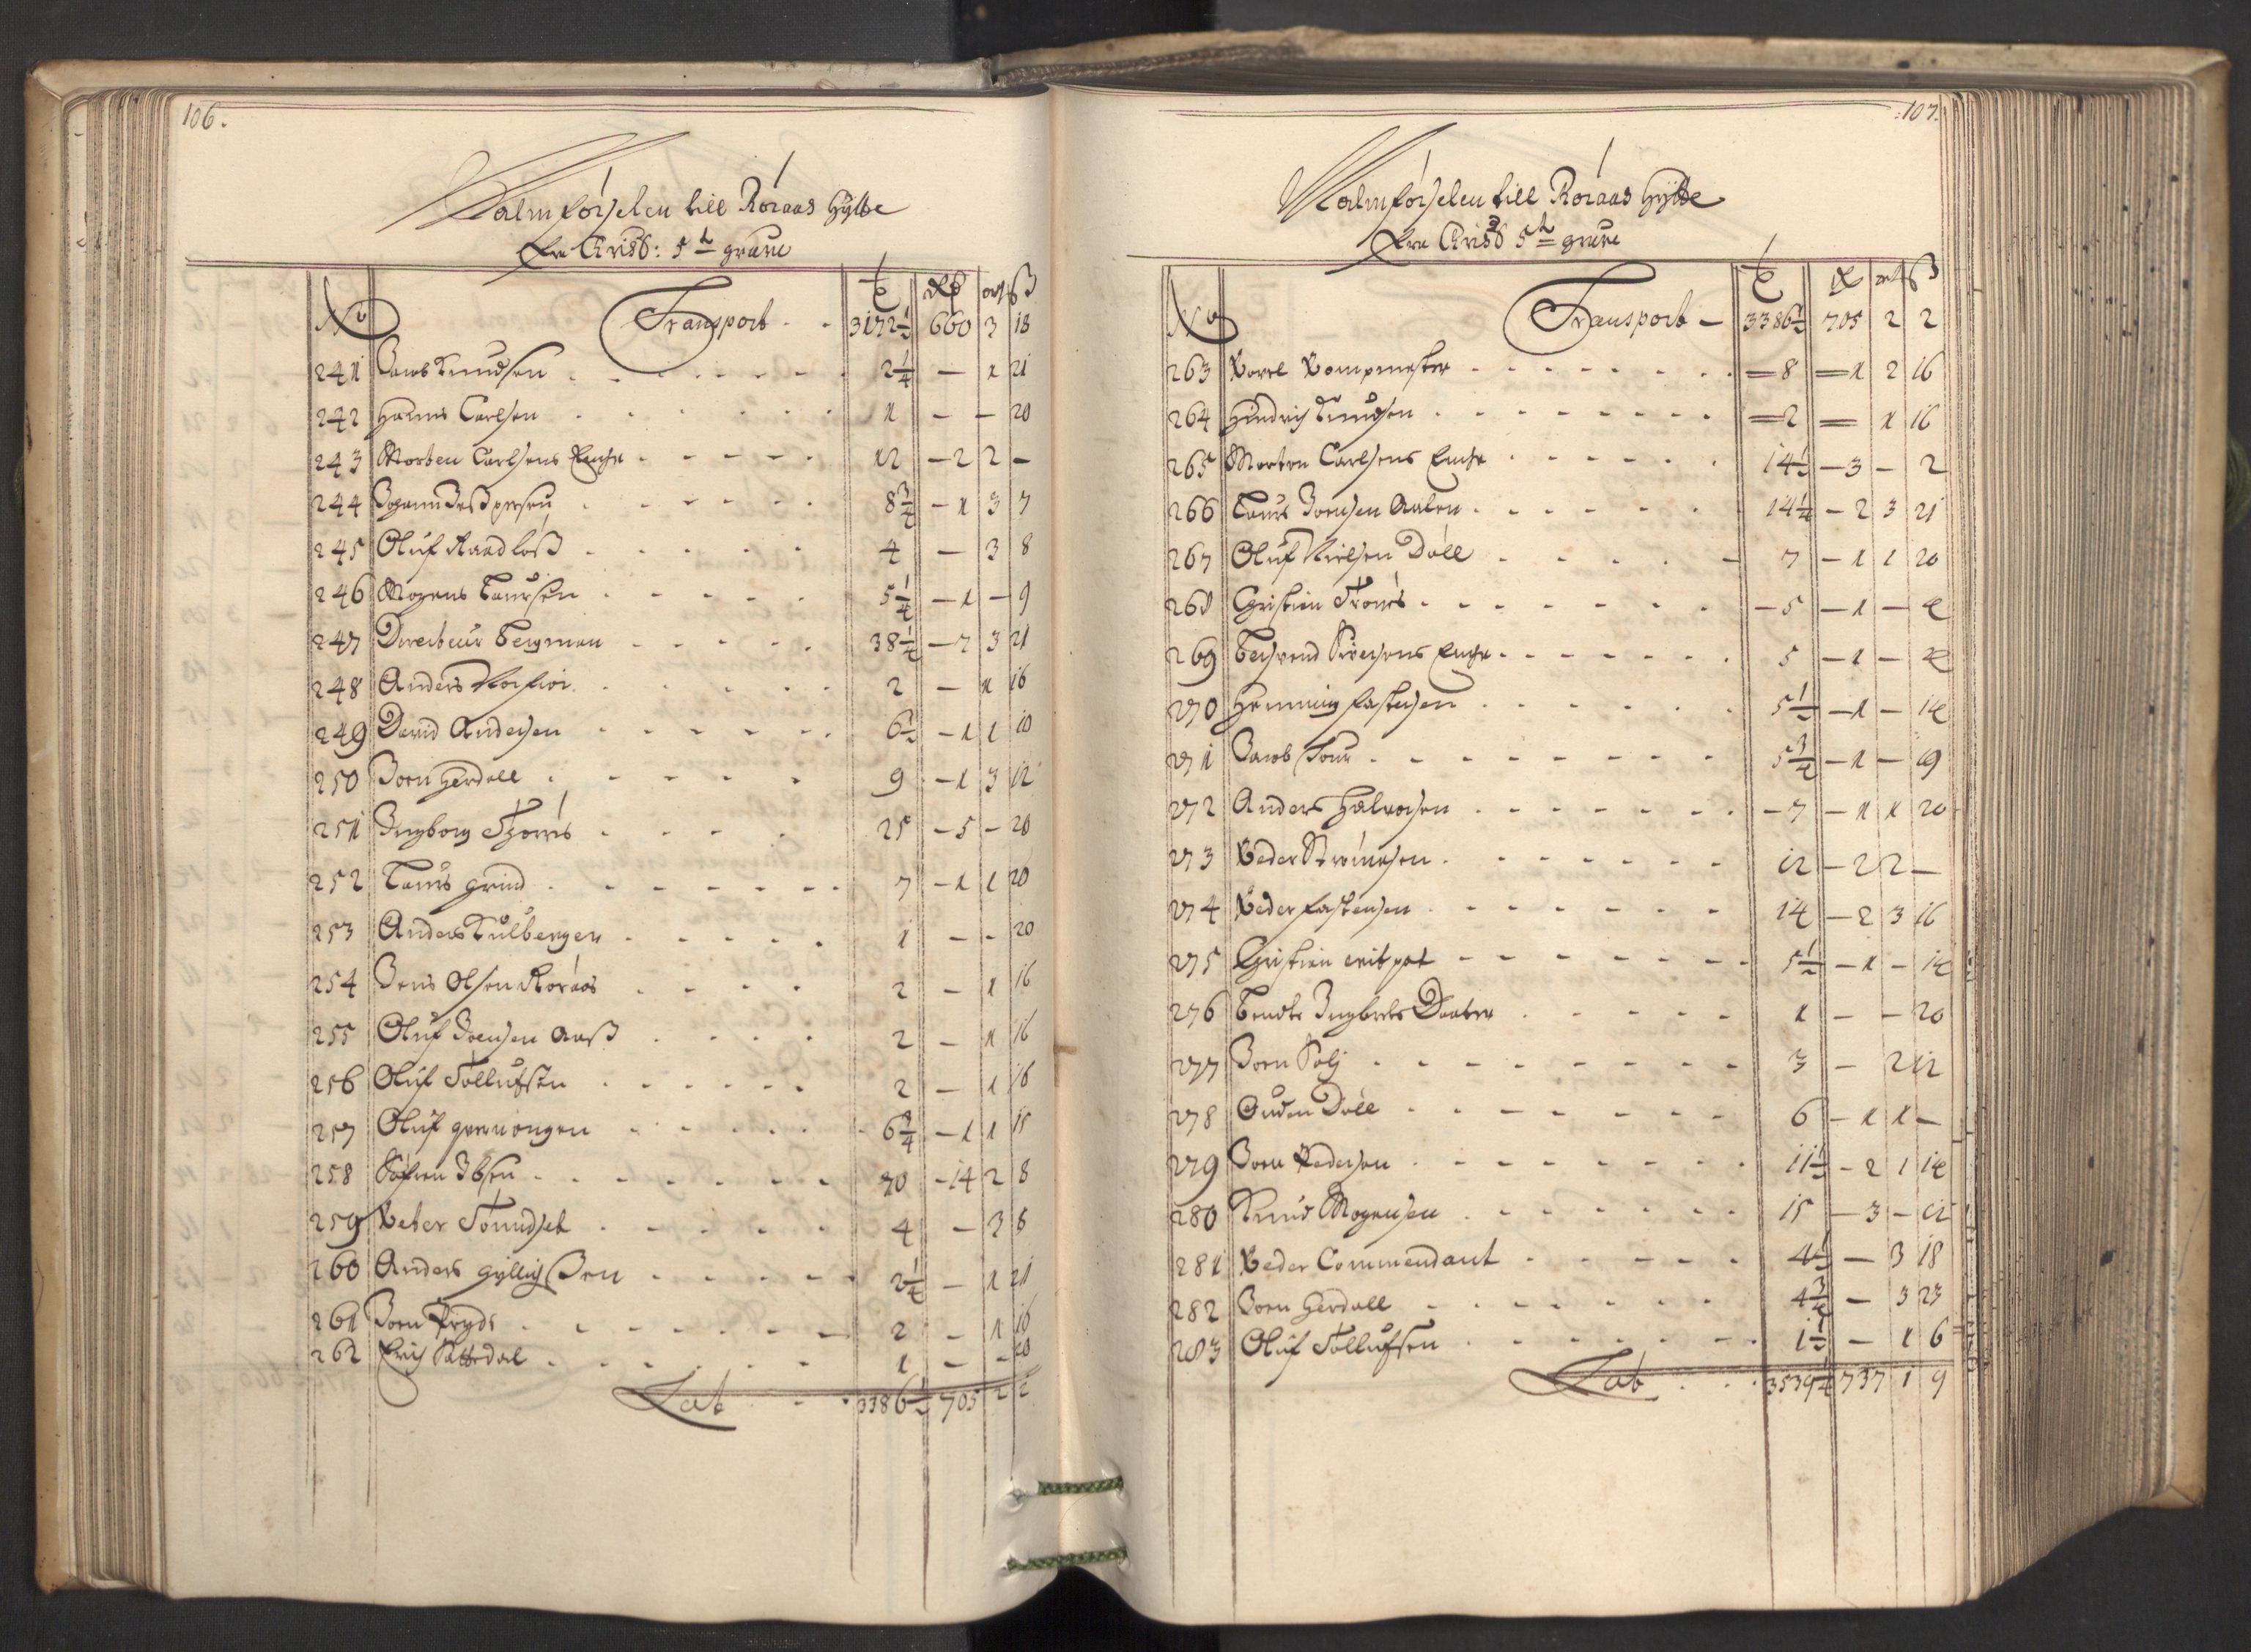 106.
Malmförselen till Röraas hÿtte
fra Christ: 5te grube
No Transport - - 3172½ 660 3 18
241 Jacob Knudsen - - - 2¼ — 1 21
242 Hanns Carlsen - - - 1 - - 20
243 Morten Carlsens Encke - - - 12 - 2 2 -
244 Johann Jespersen - - - 8¾ - 1 3 7
245 Oluf Raadløß - - - 4 — 3 8
246 Mogens Laursen - - - 5¼ - 1 - 9
247 Directeur Bergman - - - 38¼ - 7 3 21
248 Anders - - - 2 — 1 16
249 David Andersen - - - 6½ - 1 1 10
250 Joen Gerdall - - - 9 - 1 3 12
251 Ingborg - - - 25 - 5 - 20
252 Laurs grind - - - 7 - 1 1 20
253 Anders Kulbergen - - - 1 - - 20
254 Jens Olsen Röraas - - - 2 - 1 16
255 Oluf Joensen Aaß - - - 2 - 1 16
256 Oluf Tollufsen - - - 2 - 1 16
257 Oluf - - - 6¾ - 1 1 15
258 Söfren Ibsen - - - 70 - 14 2 8
259 Peter Tönndset - - - 4 - 3 8
260 Anders - - - 2¼ - 1 21
261 Joen Prÿds - - - 2 - 1 16
262 Erich Sättedal - - - 1 - - 20
Lat - - 3386½ 705 2 2
107.
Malmförselen till Röraas hÿtte
fra Christ 5te grube
No Transport - 3386½ 705 2 2
263 Povel Pompmester - - - 8 — 1 2 16
264 Hendrich Knudsen - - - 2 — 1 16
265 Morten Carlsens Encke - - - 14½ - 3 - 2
266 Laurs Joensen Aalen - - - 14¼ - 2 3 21
267 Oluf Nielsen Döll - - - 7 - 1 1 20
268 Christen Trönes - - - 5 - 1 - 4
269 Siversens Encke - - - 5 - 1 - 4
270 Henning Fastesen - - - 5½ - 1 - 14
271 Jacob - - - 5¾ - 1 - 19
272 Anders Halvorsen - - - 7 - 1 1 20
273 Peder - - - 12 - 2 2 -
274 Peder Fastensen - - - 14 - 2 3 16
275 Christen - - - 5½ - 1 - 14
276 Bendte Ingbrets Daater - - - 1 - - 20
277 Joen - - - 3 - 2 12
278 Döll - - - 6 - 1 1 -
279 Joen Pedersen - - - 11½ - 2 1 14
280 Knud Mogensen - - - 15 - 3 - 12
281 Peder Commendant - - - 4½ - 3 18
282 Joen Gerdall - - - 4¾ - 3 23
283 Oluf Tollufsen - - - 1½ - 1 6
Lat - - 3539¼ 737 1 9